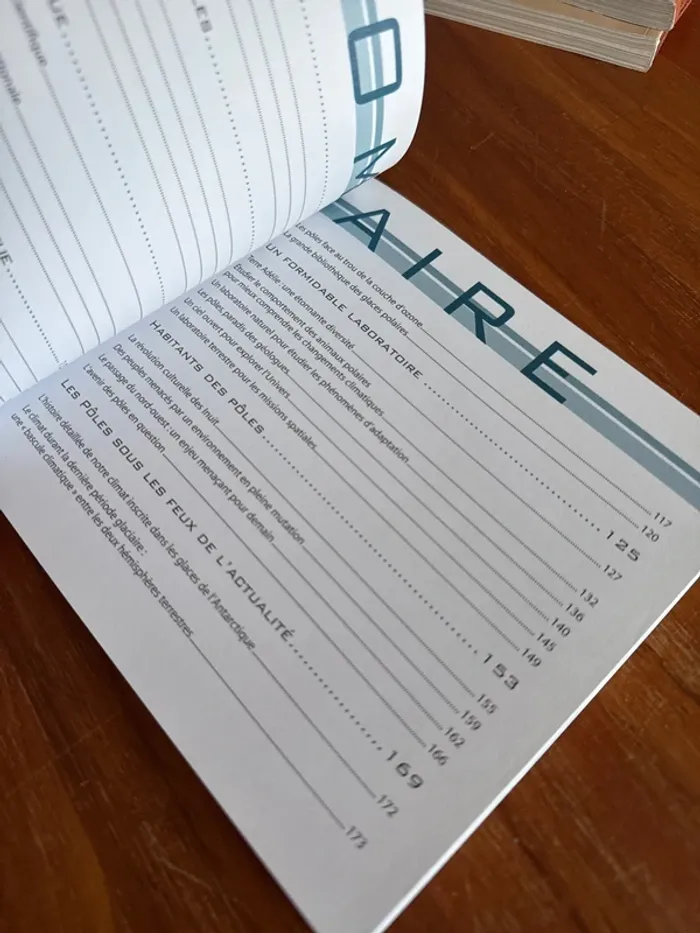 O M
AIRE
Les pôles face au trou de la couche d'ozone 117
La grande bibliothèque des glaces polaires 120
UN FORMIDABLE LABORATOIRE 125
Terre Adélie : une étonnante diversité 127
Étudier le comportement des animaux polaires
pour mieux comprendre les changements climatiques 132
Un laboratoire naturel pour étudier les phénomènes d'adaptation 136
Les pôles, paradis des géologues 140
Un ciel ouvert pour explorer l'Univers 145
Un laboratoire terrestre pour les missions spatiales 149
HABITANTS DES PÔLES 153
La révolution culturelle des Inuit 155
Des peuples menacés par un environnement en pleine mutation 159
Le passage du nord-ouest : un enjeu menaçant pour demain 162
L'avenir des pôles en question 166
LES PÔLES SOUS LES FEUX DE L'ACTUALITÉ 169
L'histoire détaillée de notre climat inscrite dans les glaces de l'Antarctique 172
Le climat durant la dernière période glaciaire :
une « bascule climatique » entre les deux hémisphères terrestres 173